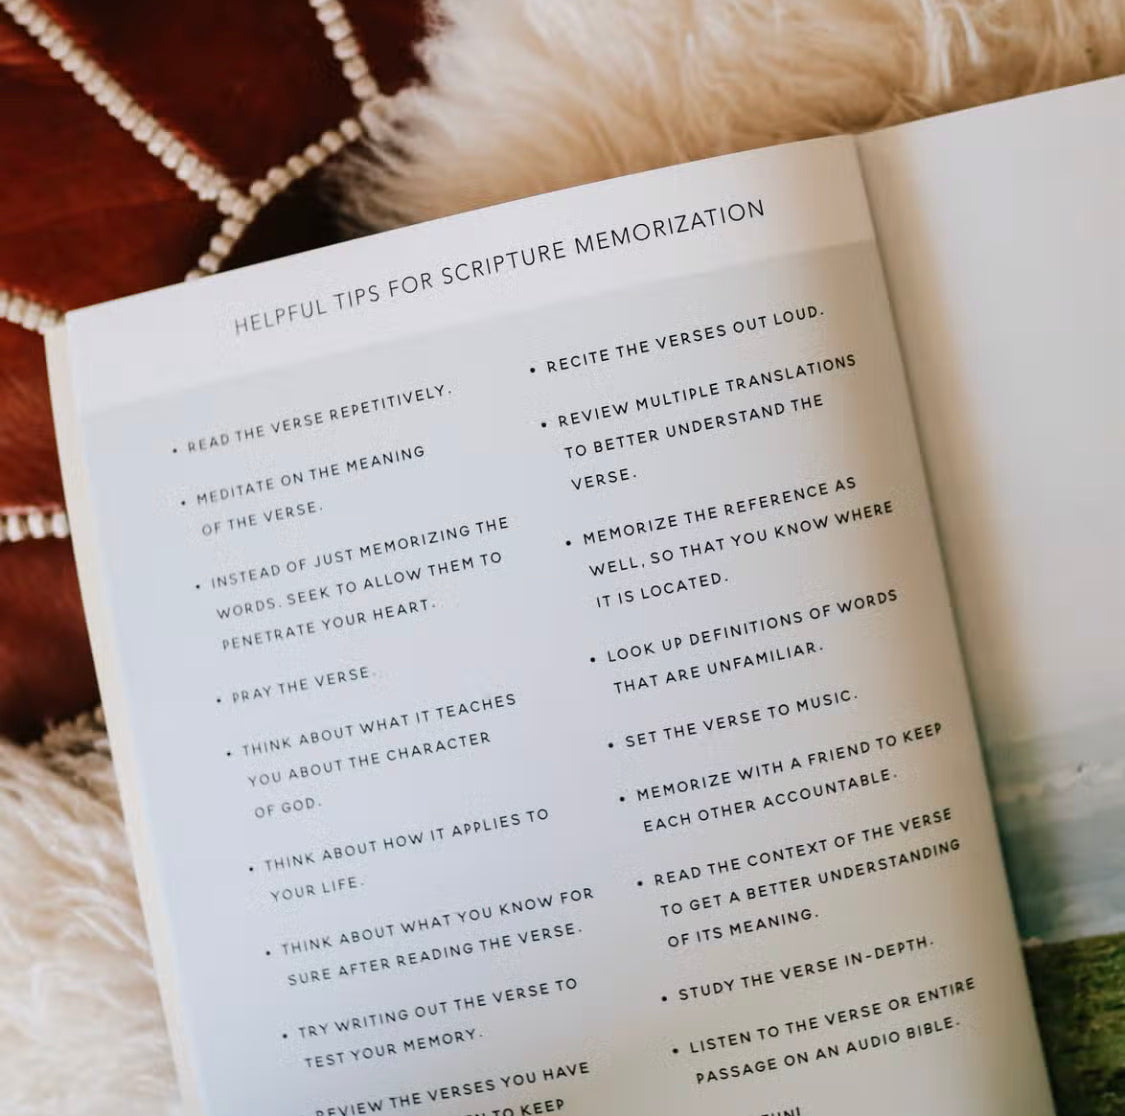 HELPFUL TIPS FOR SCRIPTURE MEMORIZATION
• READ THE VERSE REPETITIVELY.
• MEDITATE ON THE MEANING
OF THE VERSE.
• INSTEAD OF JUST MEMORIZING THE
WORDS, SEEK TO ALLOW THEM TO
PENETRATE YOUR HEART.
• PRAY THE VERSE.
• THINK ABOUT WHAT IT TEACHES
YOU ABOUT THE CHARACTER
OF GOD.
• THINK ABOUT HOW IT APPLIES TO
YOUR LIFE.
• THINK ABOUT WHAT YOU KNOW FOR
SURE AFTER READING THE VERSE.
• TRY WRITING OUT THE VERSE TO
TEST YOUR MEMORY.
REVIEW THE VERSES YOU HAVE
TO KEEP
• RECITE THE VERSES OUT LOUD.
• REVIEW MULTIPLE TRANSLATIONS
TO BETTER UNDERSTAND THE
VERSE.
• MEMORIZE THE REFERENCE AS
WELL, SO THAT YOU KNOW WHERE
IT IS LOCATED.
• LOOK UP DEFINITIONS OF WORDS
THAT ARE UNFAMILIAR.
• SET THE VERSE TO MUSIC.
• MEMORIZE WITH A FRIEND TO KEEP
EACH OTHER ACCOUNTABLE.
• READ THE CONTEXT OF THE VERSE
TO GET A BETTER UNDERSTANDING
OF ITS MEANING.
• STUDY THE VERSE IN-DEPTH.
• LISTEN TO THE VERSE OR ENTIRE
PASSAGE ON AN AUDIO BIBLE.